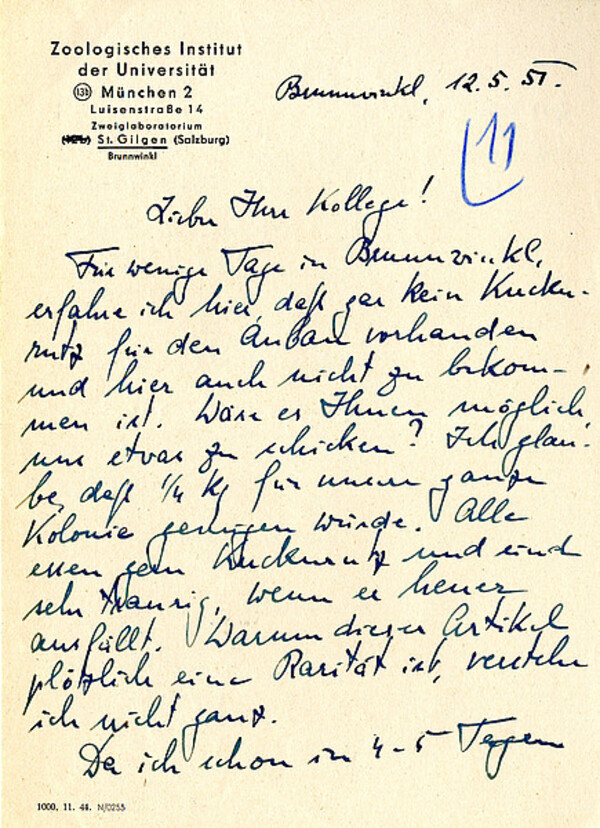 Zoologisches Institut
der Universität
13b München 2
Luisenstraße 14
Zweiglaboratorium
St. Gilgen (Salzburg)
Brunnwinkl
Brunnwinkl, 12.5.51.
11
Lieber Herr Kollege!
Für wenige Tage in Brunnwinkl,
erfahre ich hier, daß gar kein Kucku-
rutz für den Anbau vorhanden
und hier auch nicht zu bekom-
men ist. Wäre es Ihnen möglich,
uns etwas zu schicken? Ich glau-
be, daß 1/4 kg für unsere ganze
Kolonie genügen würde. Alle
essen gern Kuckurutz und sind
sehr traurig, wenn er heuer
ausfällt. Warum dieser Artikel
plötzlich eine Rarität ist, verstehe
ich nicht ganz.
Da ich schon in 4-5 Tagen
1000. 11. 44. N/0255